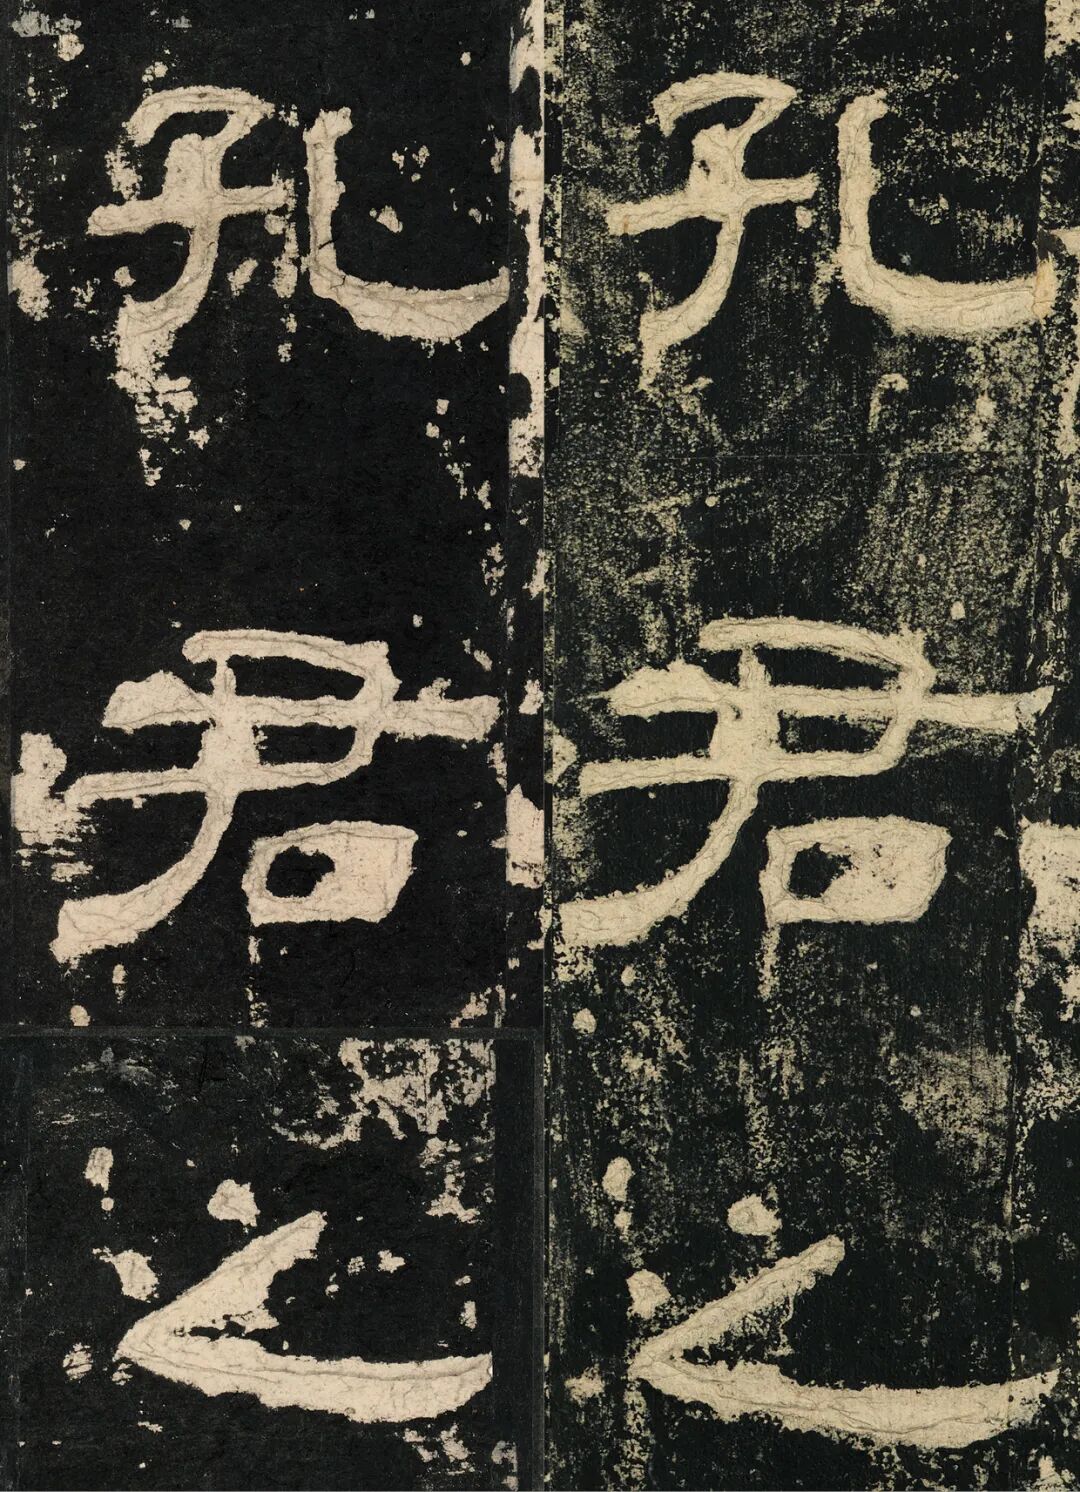 孔君之
孔君之